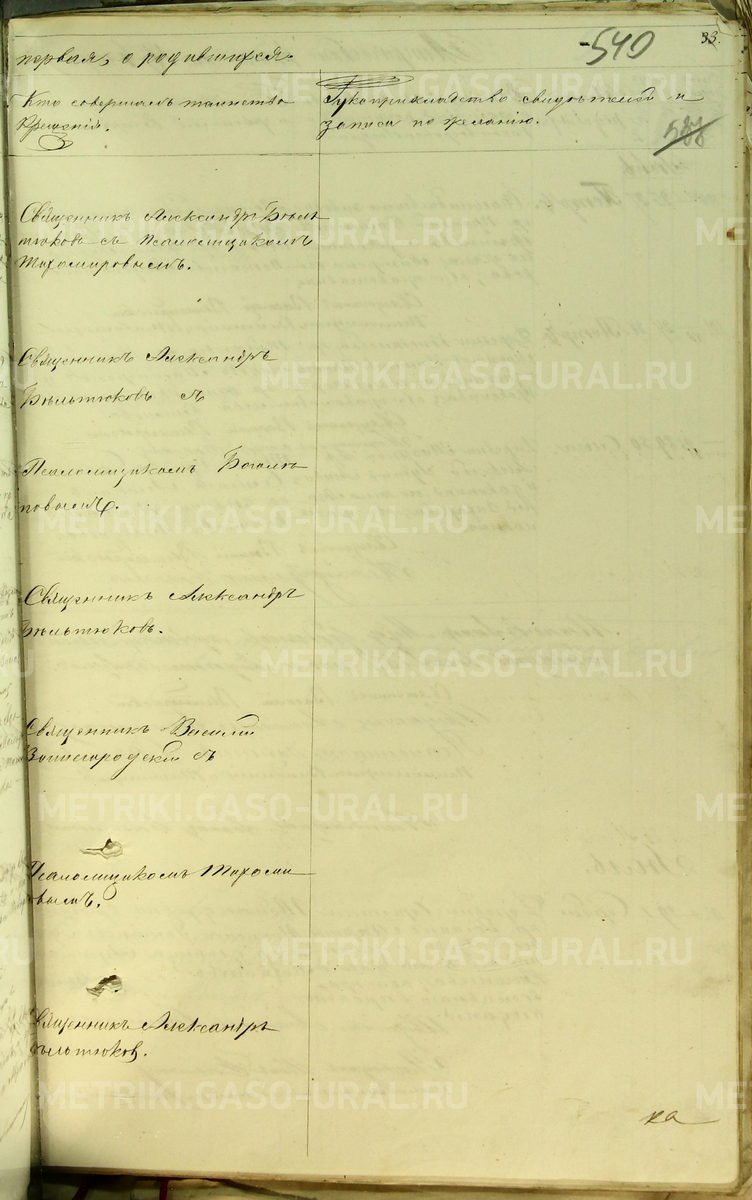 540
33.
первая, о родившихся.
Кто совершалъ таинство
Крещенія.
Рукоприкладство свидѣтелей и
записи по желанію.
588
Священникъ Александръ Бѣль
тюковъ съ Псаломщикомъ
Тихомировымъ.
Священникъ Александръ
Бѣльтюковъ съ
Псаломщикомъ Богом
повымъ.
Священникъ Александръ
Бѣльтюковъ.
Священникъ Василій
Звенигородскій съ
Псаломщикомъ Тихоми
ровымъ.
Священникъ Александръ
Бѣльтюков.
ка
METRIKI.GASO-URAL.RU